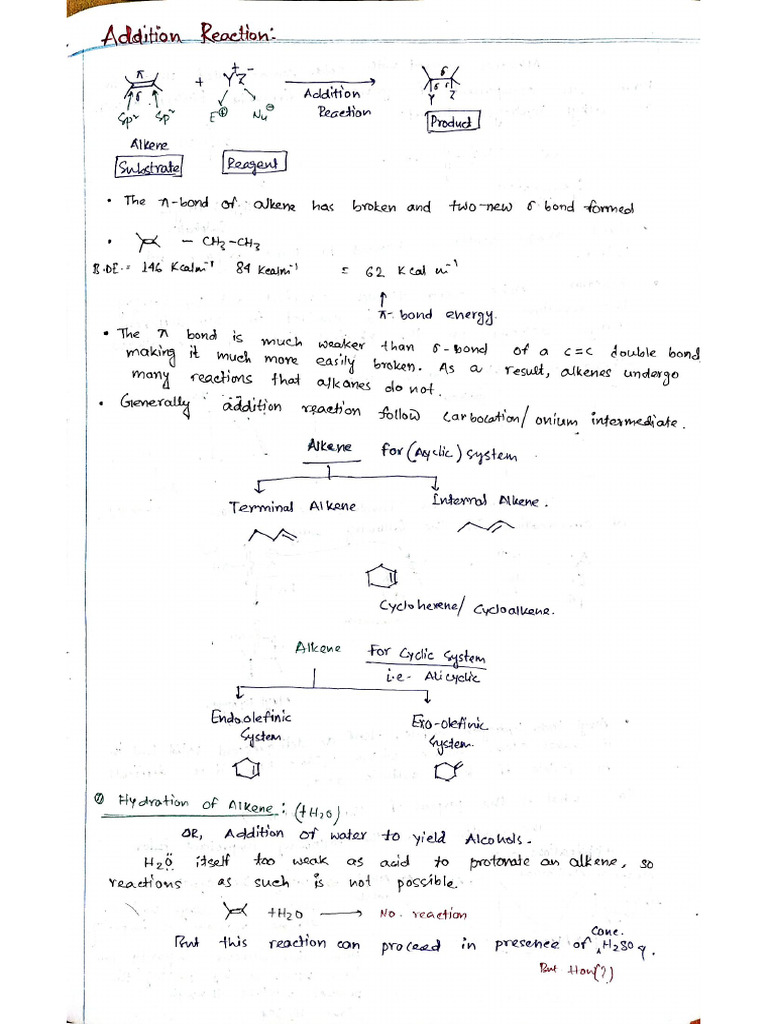 Addition Reaction:
π
σ
Sp² Sp²
Alkene
Substrate
+
Y⁺ Z⁻
E⊕ Nu⊖
Reagent
Addition
Reaction
σ
σ σ
Y Z
Product
• The π-bond of alkene has broken and two new σ bond formed
• — CH3-CH3
B.DE.= 146 Kcalm⁻¹ 84 Kcalm⁻¹ = 62 Kcal m⁻¹
π-bond energy.
• The π bond is much weaker than σ-bond of a C=C double bond
making it much more easily broken. As a result, alkenes undergo
many reactions that alkanes do not.
• Generally addition reaction follow carbocation/onium intermediate.
Alkene for (Acyclic) system
Terminal Alkene Internal Alkene.
Cyclohexene/ Cycloalkene.
Alkene For Cyclic System
i.e- Alicyclic
Endoolefinic
System
Exo-olefinic
System.
Hydration of Alkene: (+H2O)
OR, Addition of water to yield Alcohols.
H2Ö itself too weak as acid to protonate an alkene, so
reactions as such is not possible.
+H2O ⟶ No. reaction
But this reaction can proceed in presence of ^ Conc. H2SO4.
But How(?)